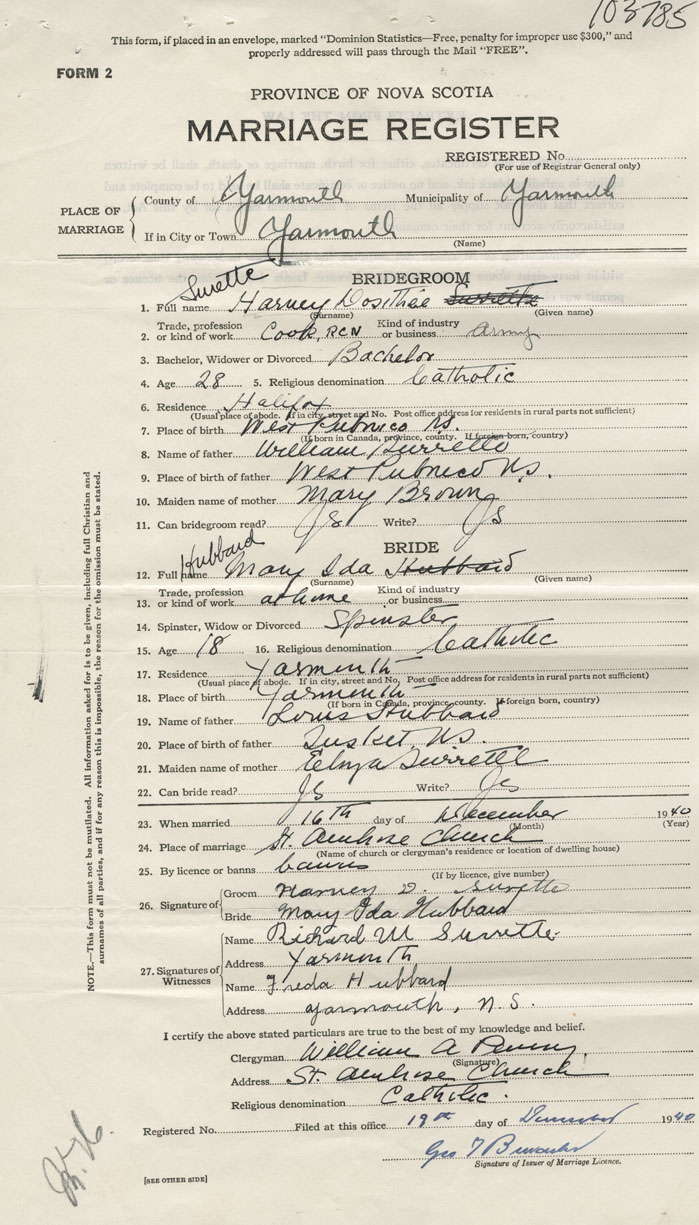 103785
This form, if placed in an envelope, marked "Dominion Statistics—Free, penalty for improper use $300," and
properly addressed will pass through the Mail "FREE".
FORM 2
PROVINCE OF NOVA SCOTIA
MARRIAGE REGISTER
REGISTERED No.
(For use of Registrar General only)
PLACE OF MARRIAGE
County of Yarmouth Municipality of Yarmouth
If in City or Town Yarmouth
(Name)
BRIDEGROOM
Surette
1. Full name Harvey Dosithie Surrette
(Surname) (Given name)
2. Trade, profession or kind of work Cook, RCN Kind of industry or business Army
3. Bachelor, Widower or Divorced Bachelor
4. Age 28 5. Religious denomination Catholic
6. Residence Halifax
(Usual place of abode. If in city, street and No. Post office address for residents in rural parts not sufficient)
7. Place of birth West Pubnico N.S.
(If born in Canada, province, county. If foreign born, country)
8. Name of father William Surrette
9. Place of birth of father West Pubnico N.S.
10. Maiden name of mother Mary Brown
11. Can bridegroom read? Yes Write? Yes
BRIDE
Hubbard
12. Full name Mary Ida Hubbard
(Surname) (Given name)
13. Trade, profession or kind of work at home Kind of industry or business
14. Spinster, Widow or Divorced Spinster
15. Age 18 16. Religious denomination Catholic
17. Residence Yarmouth
(Usual place of abode. If in city, street and No. Post office address for residents in rural parts not sufficient)
18. Place of birth Yarmouth
(If born in Canada, province, county. If foreign born, country)
19. Name of father Louis Hubbard
20. Place of birth of father Tusket, N.S.
21. Maiden name of mother Eliza Surrette
22. Can bride read? Yes Write? Yes
23. When married 16th day of December 1940
(Month) (Year)
24. Place of marriage St. Ambrose Church
(Name of church or clergyman's residence or location of dwelling house)
25. By licence or banns banns
(If by licence, give number)
26. Signature of
Groom Harvey D. Surette
Bride Mary Ida Hubbard
27. Signatures of Witnesses
Name Richard M Surrette
Address Yarmouth
Name Freda Hubbard
Address Yarmouth, N.S.
I certify the above stated particulars are true to the best of my knowledge and belief.
Clergyman William A Penny
(Signature)
Address St. Ambrose Church
Religious denomination Catholic.
Registered No. Filed at this office 19th day of December 1940
Geo T
Signature of Issuer of Marriage Licence.
[SEE OTHER SIDE]
NOTE.—This form must not be mutilated. All information asked for is to be given, including full Christian and
surnames of all parties, and if for any reason this is impossible, the reason for the omission must be stated.